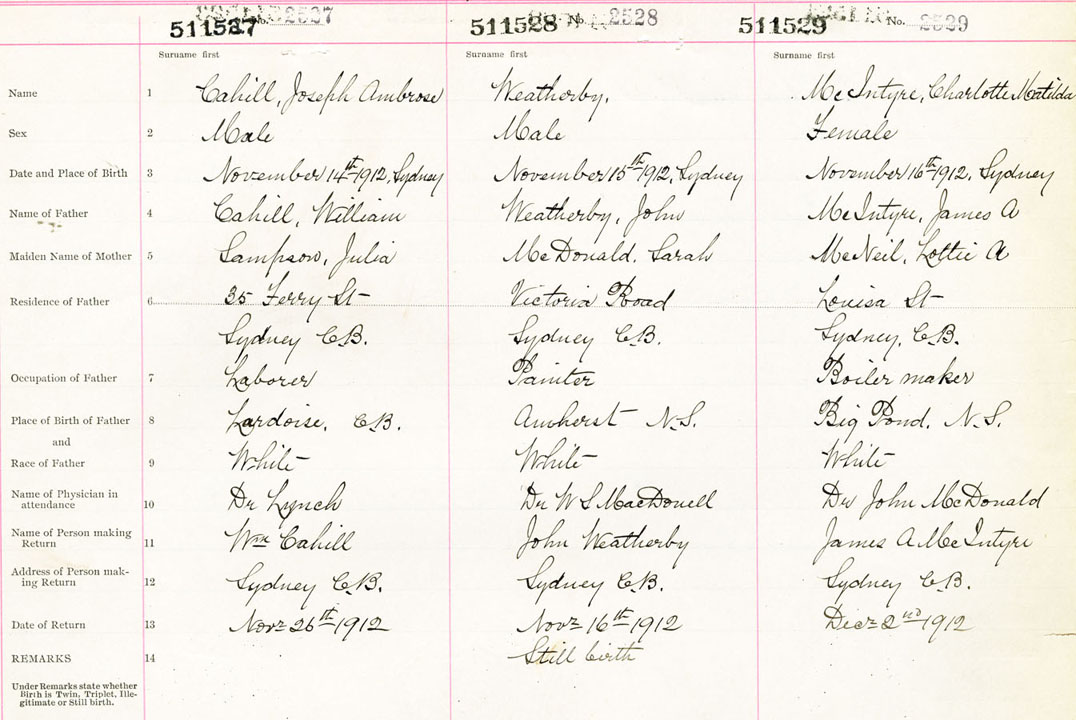 511527 No. 2527 511528 No. 2528 511529 No. 2529
Surname first Surname first Surname first
Name 1 Cahill, Joseph Ambrose Weatherby, McIntyre, Charlotte Matilda
Sex 2 Male Male Female
Date and Place of Birth 3 November 14th 1912, Sydney November 15th 1912, Sydney November 16th 1912, Sydney
Name of Father 4 Cahill, William Weatherby, John McIntyre, James A
Maiden Name of Mother 5 Sampson, Julia McDonald, Sarah McNeil, Lottie A
Residence of Father 6 35 Ferry St Victoria Road Louisa St
Sydney C.B. Sydney C.B. Sydney, C.B.
Occupation of Father 7 Laborer Painter Boiler maker
Place of Birth of Father 8 Lardoise, C.B. Amherst N.S. Big Pond, N.S.
and
Race of Father 9 White White White
Name of Physician in
attendance 10 Dr Lynch Dr W S MacDonell Dr John McDonald
Name of Person making
Return 11 Wm Cahill John Weatherby James A McIntyre
Address of Person mak-
ing Return 12 Sydney C.B. Sydney C.B. Sydney C.B.
Date of Return 13 Novr 26th 1912 Novr 16th 1912 Decr 2nd 1912
REMARKS 14 Still birth
Under Remarks state whether
Birth is Twin, Triplet, Ille-
gitimate or Still birth.